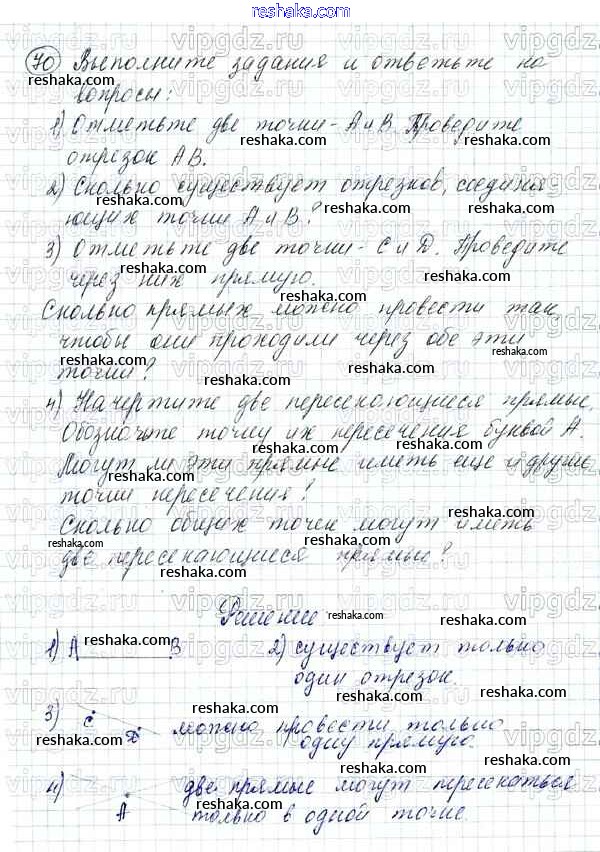 reshaka.com
70 Выполните задания и ответьте на
вопросы:
1) Отметьте две точки - А и В. Проведите
отрезок АВ.
2) Сколько существует отрезков, соединя-
ющих точки А и В?
3) Отметьте две точки - С и D. Проведите
через них прямую.
Сколько прямых можно провести так,
чтобы они проходили через обе эти
точки?
4) Начертите две пересекающиеся прямые.
Обозначьте точку их пересечения буквой А.
Могут ли эти прямые иметь еще и другие
точки пересечения?
Сколько общих точек могут иметь
две пересекающиеся прямые?
Решение
1) А В 2) существует только
один отрезок.
3) С D можно провести только
одну прямую.
4) А две прямые могут пересекаться
только в одной точке.